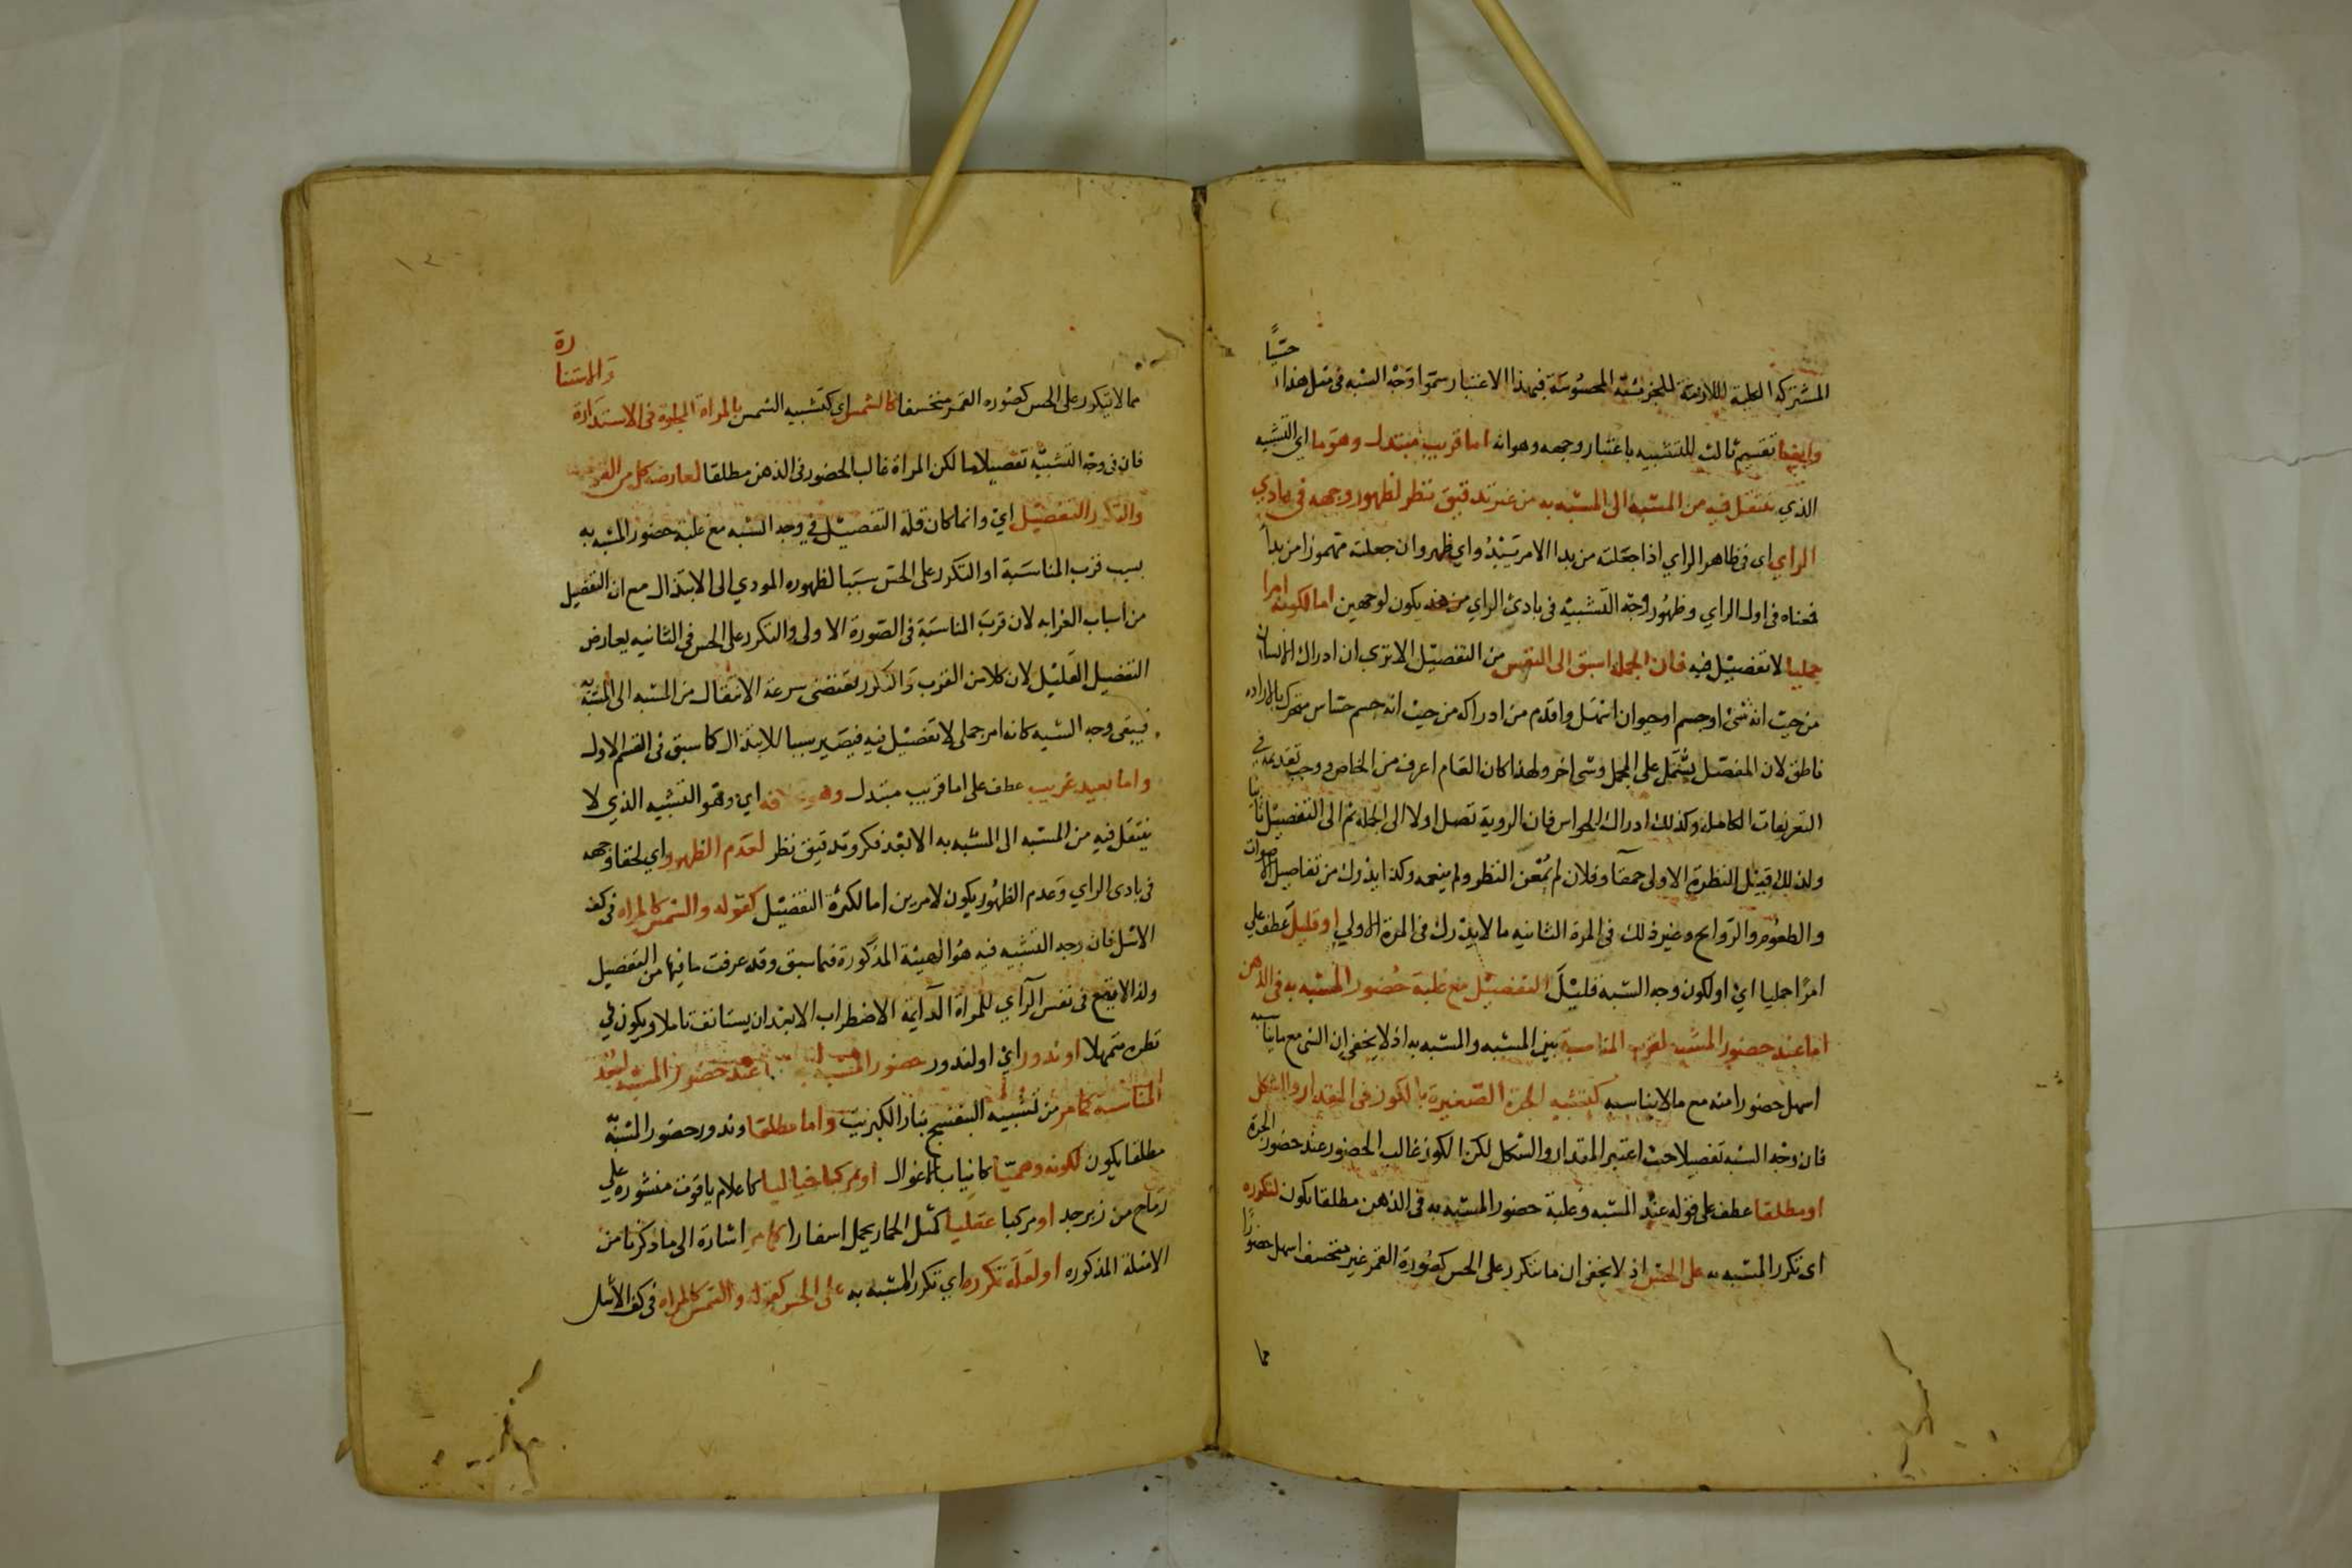 حسيا
المشتركة الكلية اللازمة للجزئية المحسوسة فبهذا الاعتبار سموا وجه الشبه في مثل هذا
وايضا تقسيم ثالث للتشبيه باعتبار وجهه وهو انه اما قريب مبتذل وهو ما اي التشبيه
الذي ينتقل فيه من المشبه الى المشبه به من غير تدقيق نظر لظهور وجهه في بادي
الراي اي في ظاهر الراي اذا جعلته من بدا الامر يبدو اي ظهر وان جعلته مهموزا من بدا
فمعناه في اول الراي وظهور وجه التشبيه في بادئ الراي يكون لوجهين اما لكونه امرا
جمليا لا تفصيل فيه فان الجملة اسبق الى النفس من التفصيل الا ترى ان ادراك الانسان
من حيث انه شئ او جسم او حيوان اسهل واقدم من ادراكه من حيث انه جسم حساس متحرك بالاراده
ناطق لان المفصل يشتمل على المجمل وشي اخر ولهذا كان العام اعرف من الخاص ووجب تقديمه في
التعريفات الكاملة وكذلك ادراك الحواس فان الروية تصل اولا الى الجملة ثم الى التفصيل ثانيا
ولذلك قيل النظرة الاولى حمقآ وفلان لم يمعن النظر ولم ينعمه وكذا يدرك من تفاصيل الاصوات
والطعوم والروايح وغير ذلك في المرة الثانيه ما لا يدرك في المرة الاولي او قليل عطف علي
امرًا جمليا اي او لكون وجه الشبه قليل التفصيل مع غلبة حضور المشبه به في الذهن
اما عند حضور المشبه لقرب المناسبة بين المشبه والمشبه به اذ لا يخفى ان الشي مع ما يناسبه
اسهل حضورا منه مع ما لا يناسبه كتشبيه الجرة الصغيرة بالكوز في المقدار والشكل
فان وجه الشبه تفصيلا حيث اعتبر المقدار والشكل لكن الكوز غالب الحضور عند حضور الجرة
او مطلقا عطف على قوله عند المشبه وغلبة حضور المشبه به في الذهن مطلقا يكون لتكرره
اي تكرر المشبه به على الحس اذ لا يخفى ان ما يتكرر على الحس كصورة القمر غير منخسف اسهل حضورًا
مما
مما لا يتكرر على الحس كصوره القمر منخسفا كالشمس اي كتشبيه الشمس بالمراة المجلوة في الاستدارة
والاستنارة
فان في وجه التشبيه تفصيلا ما لكن المراة غالب الحضور في الذهن مطلقا لمعارضة كل من القرب
والتكرر التفصيل اي وانما كان قلة التفصيل في وجه الشبه مع غلبة حضور المشبه به
بسبب قرب المناسبة او التكرر على الحس سببا لظهوره المودي الى الابتذال مع ان التفصيل
من اسباب الغرابه لان قرب المناسبة في الصورة الاولى والتكرر على الحس في الثانيه يعارض
التفصيل القليل لان كلا من القرب والتكرر يقتضى سرعة الانتقال من المشبه الى المشبه به
فيبقى وجه الشبه كانه امر جملي لا تفصيل فيه فيصير سببا للابتذال كما سبق في القسم الاول
واما بعيد غريب عطف على اما قريب مبتذل وهو بخلافه اي وهو التشبيه الذي لا
ينتقل فيه من المشبه الى المشبه به الا بعد فكر وتدقيق نظر لعدم الظهور اي لخفا وجهه
في بادى الراي وعدم الظهور يكون لامرين اما لكثرة التفصيل كقوله والشمس كالمراه في كف
الاشل فان وجه التشبيه فيه هو الهيئة المذكورة فيما سبق وقد عرفت ما فيها من التفصيل
ولذا لا يقع في نفس الرآي للمراة الدآيمة الاضطراب الا بعد ان يستانف تاملا ويكون في
نظره متمهلا او ندور اي او لندور حضور المشبه به اما عند حضور المشبه لبعد
المناسبة كما مر من تشبيه البنفسج بنار الكبريت واما مطلقا وندور حضور المشبه
مطلقا يكون لكونه وهميّا كانياب الاغوال او مركبا خياليا كاعلام ياقوت منشوره علي
رماح من زبرجد او مركبا عقليا كمثل الحمار يحمل اسفارا كما مر اشارة الى ما ذكرنا من
الامثلة المذكوره او لقلة تكرره اي تكرر المشبه به على الحس كقوله والشمس كالمراه في كف الاشل